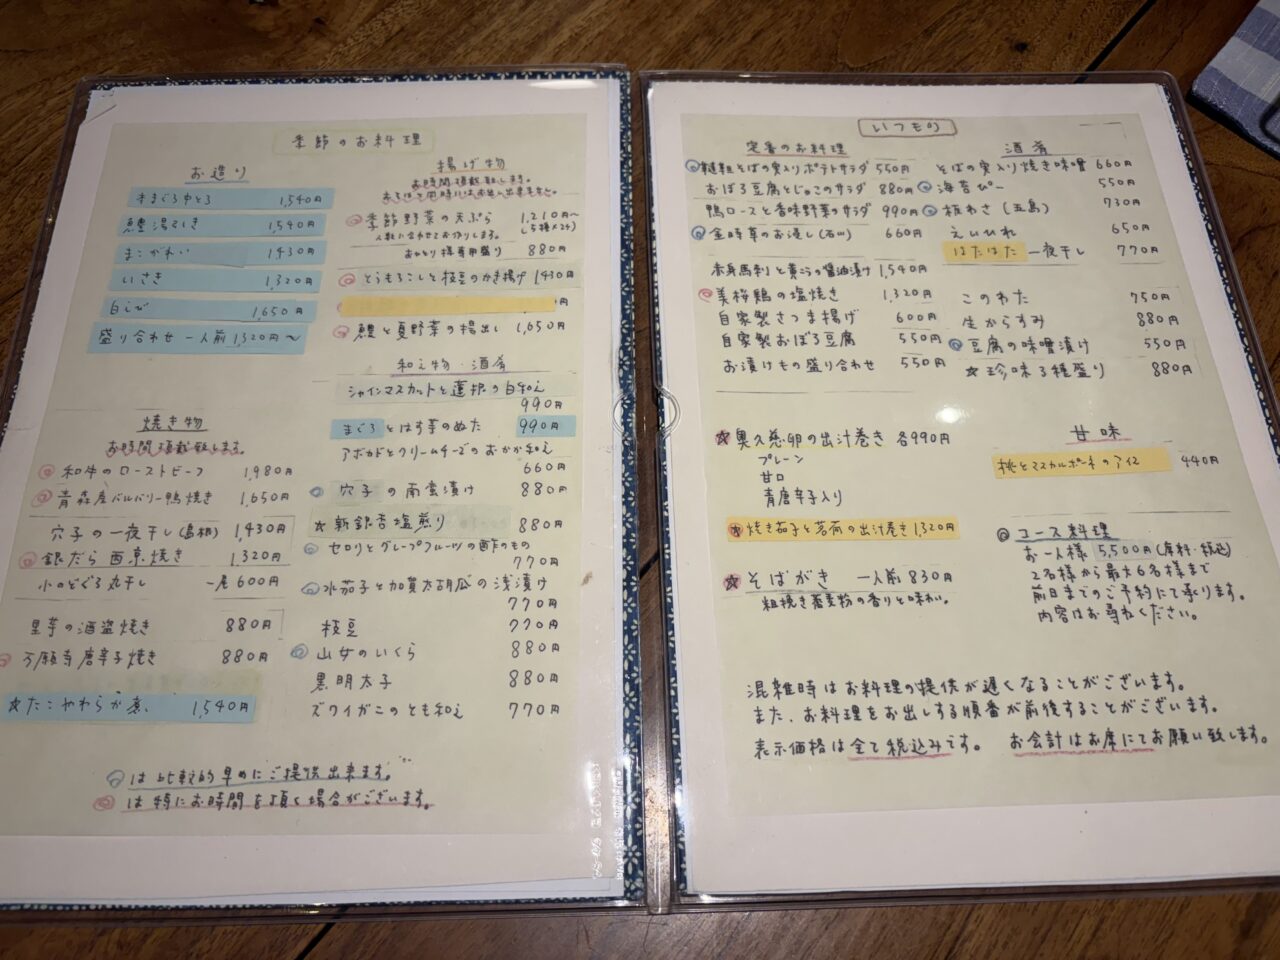 季節のお料理
お造り
本まぐろ中とろ 1,540円
鱧湯引き 1,540円
まこがれい 1430円
いさき 1,320円
白えび 1,650円
盛り合わせ 一人前 1,320円〜
焼き物
お時間頂戴致します。
和牛のローストビーフ 1,980円
青森産バルバリー鴨焼き 1,650円
穴子の一夜干し(島根) 1,430円
銀だら西京焼き 1,320円
小のどぐろ丸干し 一尾 600円
里芋の酒盗焼き 880円
万願寺唐辛子焼き 880円
☆たこやわらか煮 1,540円
揚げ物
お時間頂戴致します。
季節野菜の天ぷら 1,210円〜
人数に合わせてお作りします。 (5種×2ケ)
おひとり様専用盛り 880円
とうもろこしと枝豆のかき揚げ 1,430円
円
鱧と夏野菜の揚出し 1,650円
和え物・酒肴
シャインマスカットと
の白和え
990円
まぐろとはす芋のぬた 990円
アボカドとクリームチーズのおかか和え
660円
穴子の南蛮漬け 880円
☆新銀杏塩煎り 880円
セロリとグレープフルーツの酢のもの
770円
水茄子と加賀太胡瓜の浅漬け
770円
枝豆 770円
山女のいくら 880円
黒明太子 880円
ズワイガニのとも和え 770円
は比較的早めにご提供出来ます。
は特にお時間を頂く場合がございます。
いつもの
定番のお料理
韃靼そばの実入りポテトサラダ 550円
おぼろ豆腐とじゃこのサラダ 880円
鴨ロースと香味野菜のサラダ 990円
金時草のお浸し(石川) 660円
赤身馬刺と黄ニラの醤油漬け 1,540円
美桜鶏の塩焼き 1,320円
自家製さつま揚げ 600円
自家製おぼろ豆腐 550円
お漬けもの盛り合わせ 550円
☆奥久慈卵の出汁巻き 各990円
プレーン
甘口
青唐辛子入り
☆焼き茄子と茗荷の出汁巻き 1,320円
☆そばがき 一人前 830円
粗挽き蕎麦粉の香りと味わい。
酒肴
そばの実入り焼き味噌 660円
海苔ぴー 550円
板わさ(五島) 730円
えいひれ 650円
はたはた一夜干し 770円
このわた 750円
生からすみ 880円
豆腐の味噌漬け 550円
☆珍味3種盛り 880円
甘味
桃とマスカルポーネのアイス 440円
コース料理
お一人様 5,500円(席料・税込)
2名様から最大6名様まで
前日までのご予約にて承ります。
内容はお尋ねください。
混雑時はお料理の提供が遅くなることがございます。
また、お料理をお出しする順番が前後することがございます。
表示価格は全て税込みです。 お会計はお席にてお願い致します。